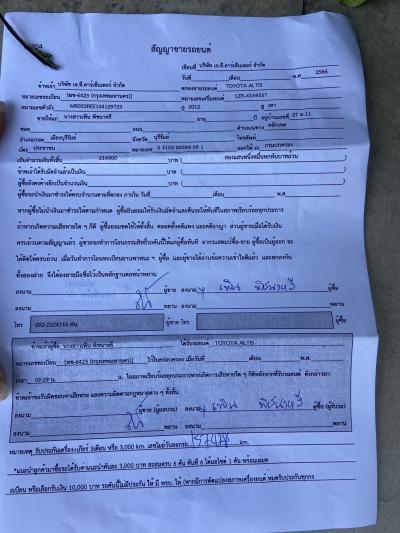 สัญญาขายรถยนต์
เขียนที่ บริษัท เจ.ที.คาร์เซ็นเตอร์ จำกัด
วันที่ เดือน พ.ศ 2566
ข้าพเจ้า บริษัท เจ.ที.คาร์เซ็นเตอร์ จำกัด ตกลงขายรถยนต์ TOYOTA ALTIS
หมายเลขทะเบียน [ฆฆ-6423 (กรุงเทพมหานคร)] หมายเลขเครื่องยนต์ 1ZR-X169537
หมายเลขตัวถัง MR053REE104129723 ปี 2012 สี เทา
ขายให้แก่ นางสาวเพิน พิชนาหรี อายุ ปี อยู่บ้านเลขที่ 27 ม.11
ซอย ถนน ตำบล/แขวง หลักเขต
อำเภอ/เขต เมืองบุรีรัมย์ จังหวัด บุรีรัมย์ โทรศัพท์
บัตร ประชาชน หมายเลข 3 3103 00544 09 1 ออกให้ ณ กรมการปกครอง
เป็นจำนวนเงินทั้งสิ้น 216000 บาท ( สองแสนหนึ่งหมื่นหกพันบาทถ้วน )
ข้าพเจ้าได้รับมัดจำแล้วเป็นเงิน บาท ( )
ผู้ซื้อยังคงค้างอีกเป็นจำนวนเงิน บาท ( )
ผู้ซื้อจะนำเงินมาชำระให้ครบจำนวนตามที่ตกลง ภายใน วันที่ เดือน พ.ศ
หากผู้ซื้อไม่นำเงินมาชำระให้ตามกำหนด ผู้ซื้อยินยอมให้ริบเงินมัดจำและคืนรถให้ทันทีในสภาพเรียบร้อยทุกประการ
ถ้าหากเกิดความเสียหายใด ๆ ก็ดี ผู้ซื้อยอมชดใช้ให้ทั้งสิ้น ตลอดทั้งคดีแพ่ง และคดีอาญา ส่วนผู้ขายเมื่อได้รับเงิน
ครบถ้วนตามสัญญาแล้ว ผู้ขายจะทำการโอนกรรมสิทธิ์รถคันนี้ให้แก่ผู้ซื้อทันที
ทั้งสองฝ่าย จึงได้ลงลายมือชื่อไว้เป็นหลักฐานต่อหน้าพยาน
ลงนาม ผู้ขาย ลงนาม เพิน พิชนาหรี ผู้ซื้อ
ลงนาม พยาน ลงนาม พยาน
โทร 092-2524116 ฝน ผู้ขาย โทร ผู้ซื้อ
ข้าพเจ้าผู้ซื้อ นางสาวเพิน พิชนาหรี ได้รับรถยนต์ TOYOTA ALTIS
หมายเลขทะเบียน [ฆฆ-6423 (กรุงเทพมหานคร)] ไว้ในครอบครอง เมื่อวันที่ เดือน พ.ศ.
เวลา 09.09 น. น. ในสภาพเรียบร้อยทุกประการหากเกิดการเสียหายใด ๆ ก็ดีหลังจากที่รับรถยนต์ ดังกล่าวมา
ข้าพเจ้าขอรับผิดชอบค่าเสียหาย และความผิดตามกฎหมายต่าง ๆ ทั้งสิ้น
ลงนาม ผู้ขาย (ผู้มอบรถ) ลงนาม เพิน พิชนาหรี ผู้ซื้อ (ผู้รับรถ)
ลงนาม พยาน ลงนาม พยาน
หมายเหตุ รับประกันเครื่อง+เกียร์ 3เดือน หรือ 3,000 km. เลขไมล์วันออกรถ km.
*แนะนำลูกค้ามาซื้อรถได้รับค่าแนะนำคันละ 3,000 บาท สะสมครบ 6 คัน คันที่ 6 ได้มอไซค์ 1 คัน พร้อมเล่ม